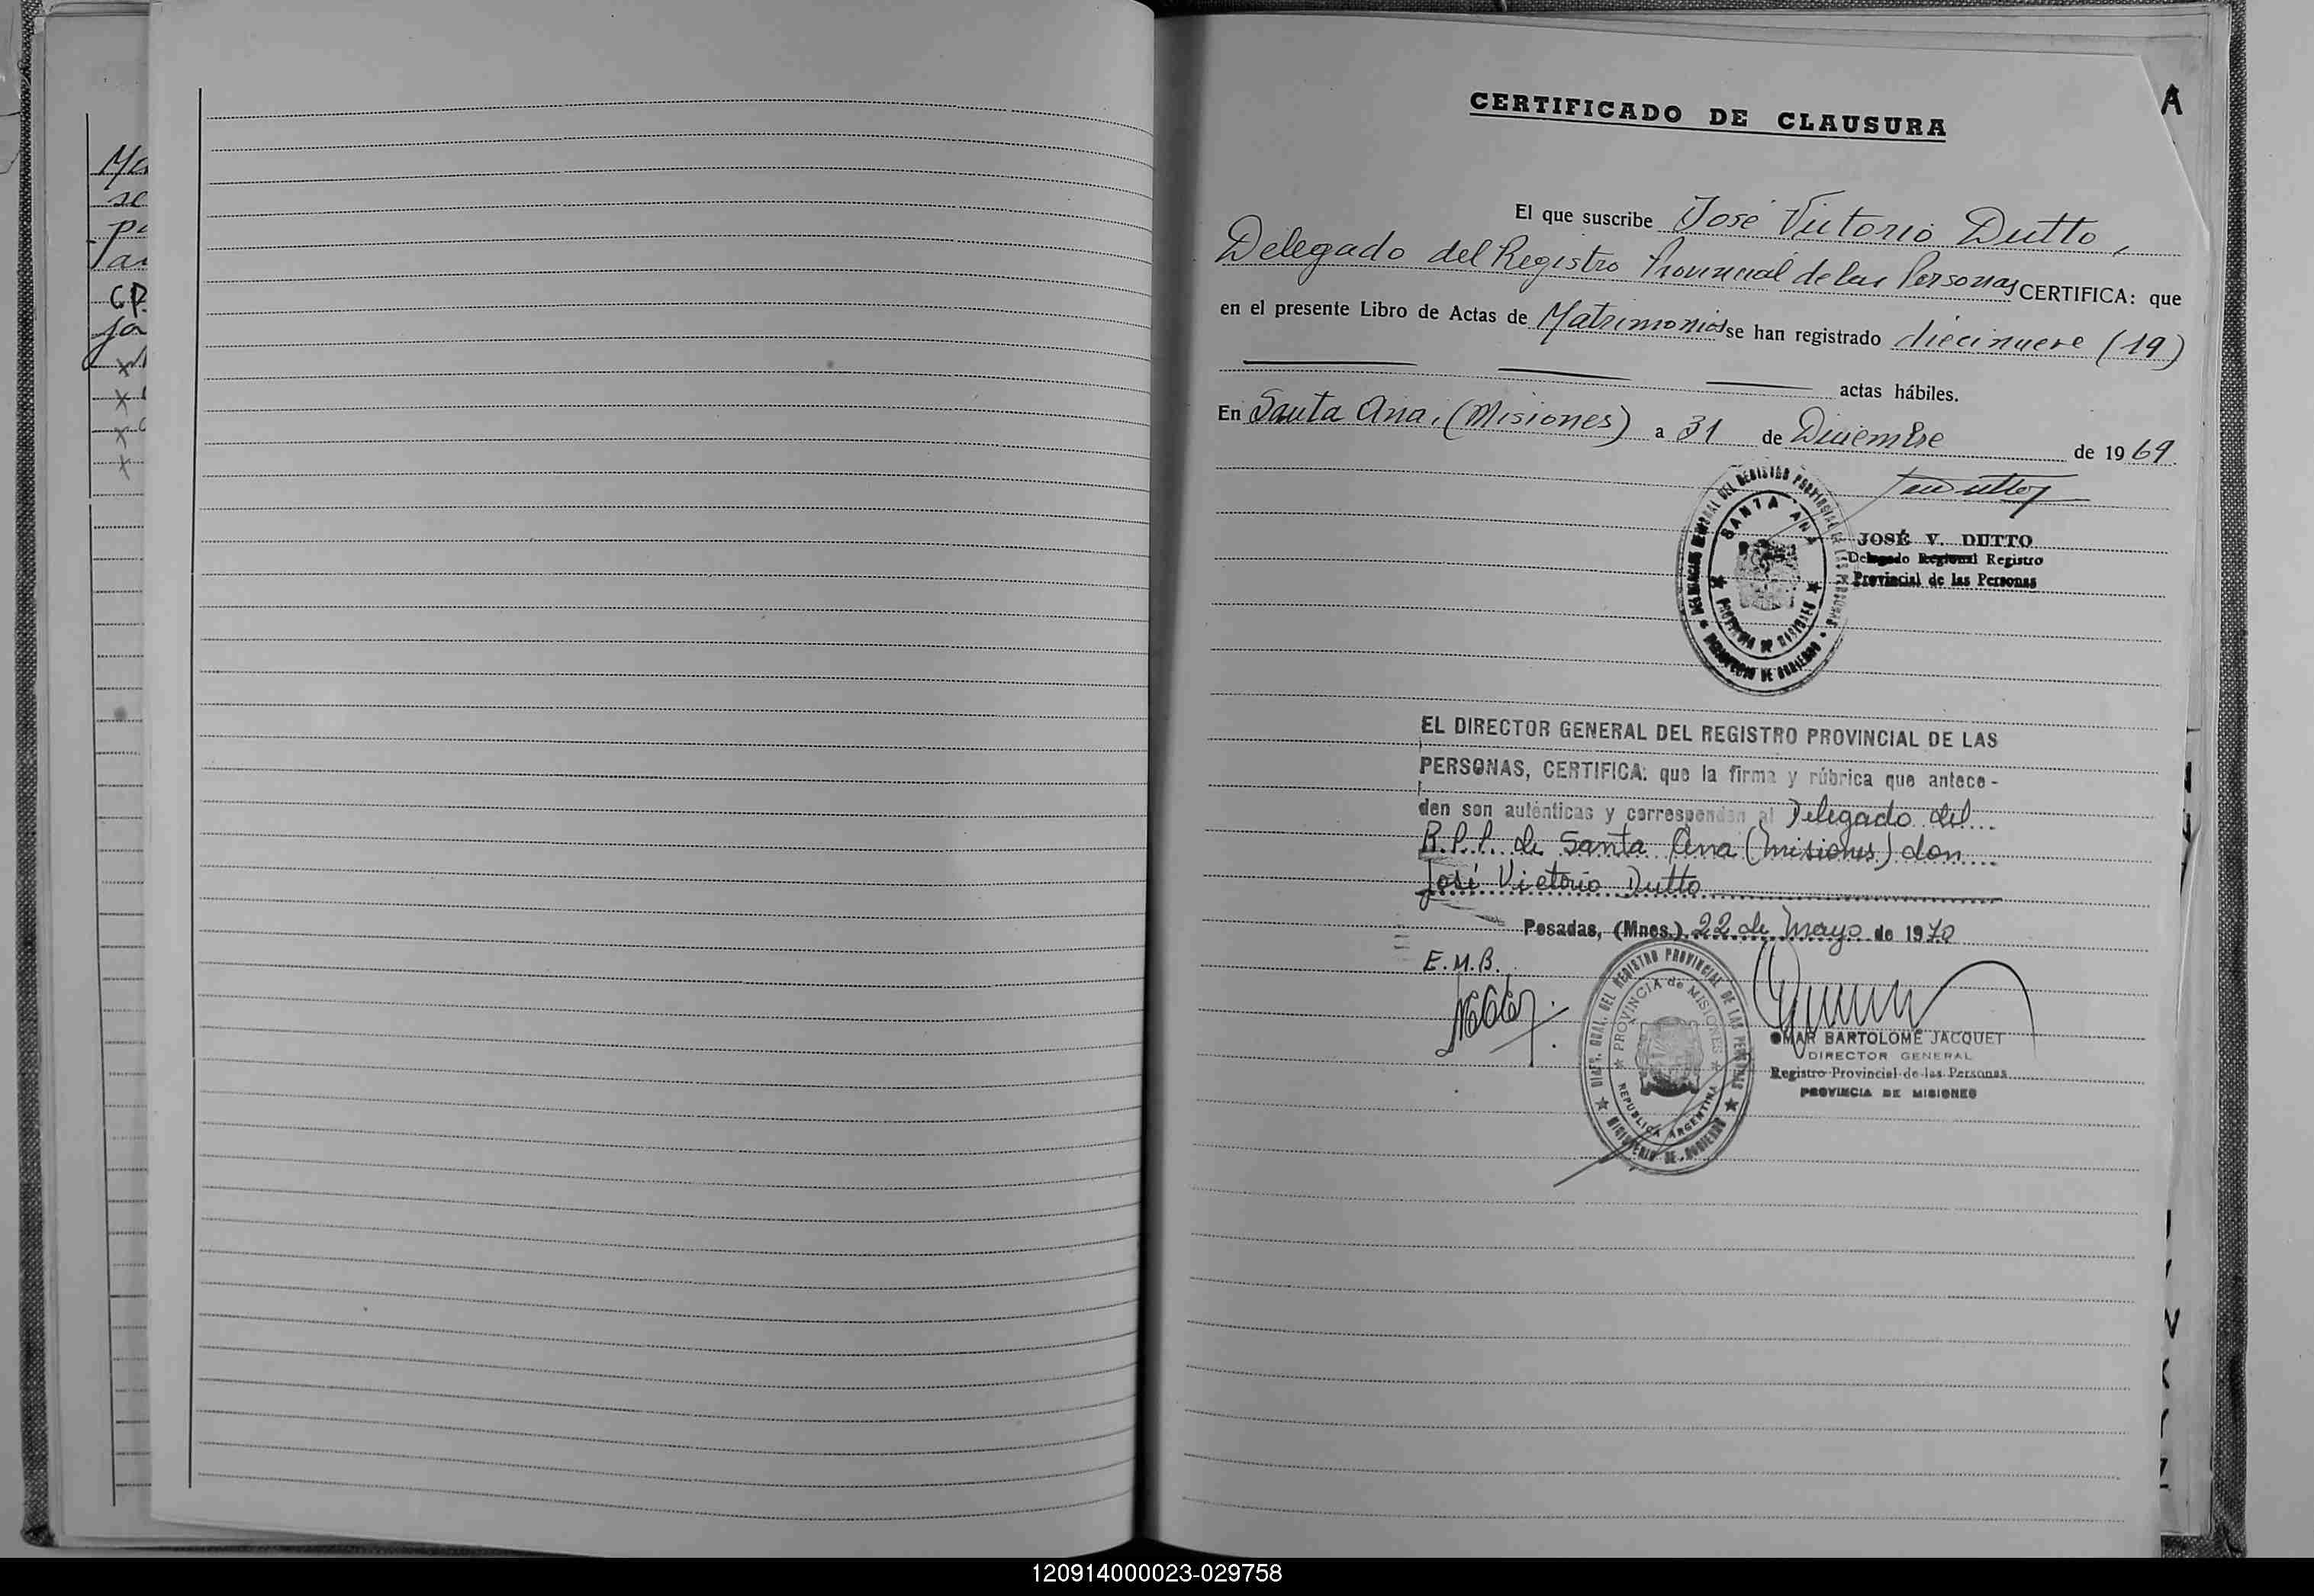 Ma
se
pa
CERTIFICADO DE CLAUSURA
A
El que suscribe José Victorio Dutto,
Delegado del Registro Provincial de las Personas CERTIFICA: que
en el presente Libro de Actas de Matrimonios se han registrado diecinueve (19)
actas hábiles.
En Santa Ana, (Misiones) a 31 de Diciembre de 1969
JOSÉ V. DUTTO
Delegado Regional Registro
Provincial de las Personas
DEL REGISTRO PROVINCIAL DE LAS PERSONAS
SANTA ANA
PROVINCIA DE MISIONES
MINISTERIO DE GOBIERNO
EL DIRECTOR GENERAL DEL REGISTRO PROVINCIAL DE LAS
PERSONAS, CERTIFICA: que la firma y rúbrica que antece-
den son auténticas y corresponden al Delegado del
R.P.P. de Santa Ana (Misiones) don
José Victorio Dutto
Posadas, (Mnes.) 22 de Mayo de 1970
E.M.B.
DIREC. GRAL. DEL REGISTRO PROVINCIAL DE LAS PERSONAS
PROVINCIA de MISIONES
REPUBLICA ARGENTINA
MINISTERIO DE GOBIERNO
OMAR BARTOLOMÉ JACQUET
DIRECTOR GENERAL
Registro Provincial de las Personas
PROVINCIA DE MISIONES
120914000023-029758